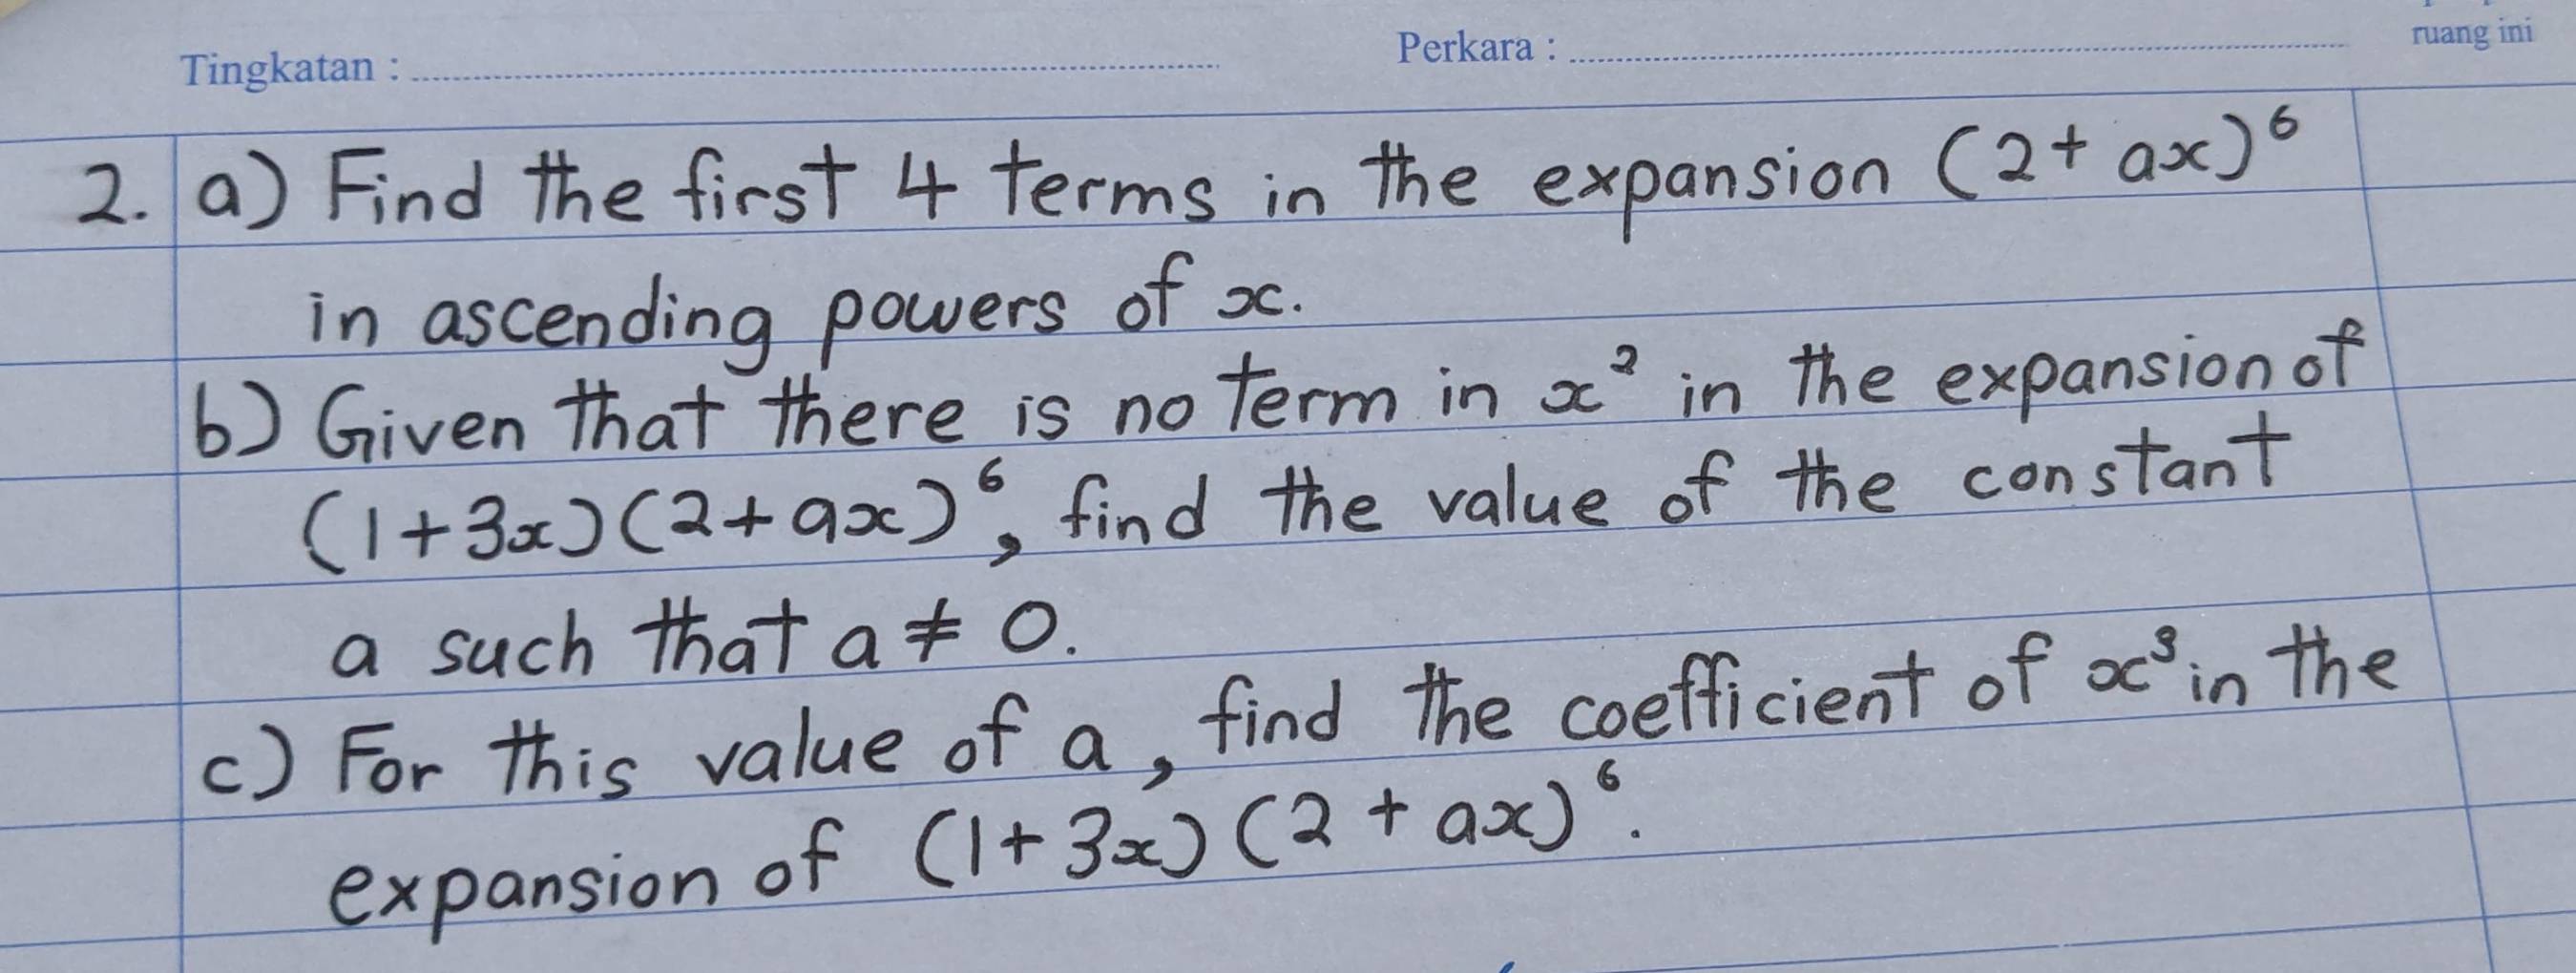 Tingkatan : Perkara : ruang ini
2. a) Find the first 4 terms in the expansion (2 + ax)⁶
in ascending powers of x.
b) Given that there is no term in x² in the expansion of
(1 + 3x)(2 + ax)⁶, find the value of the constant
a such that a ≠ 0.
c) For this value of a, find the coefficient of x³ in the
expansion of (1 + 3x)(2 + ax)⁶.